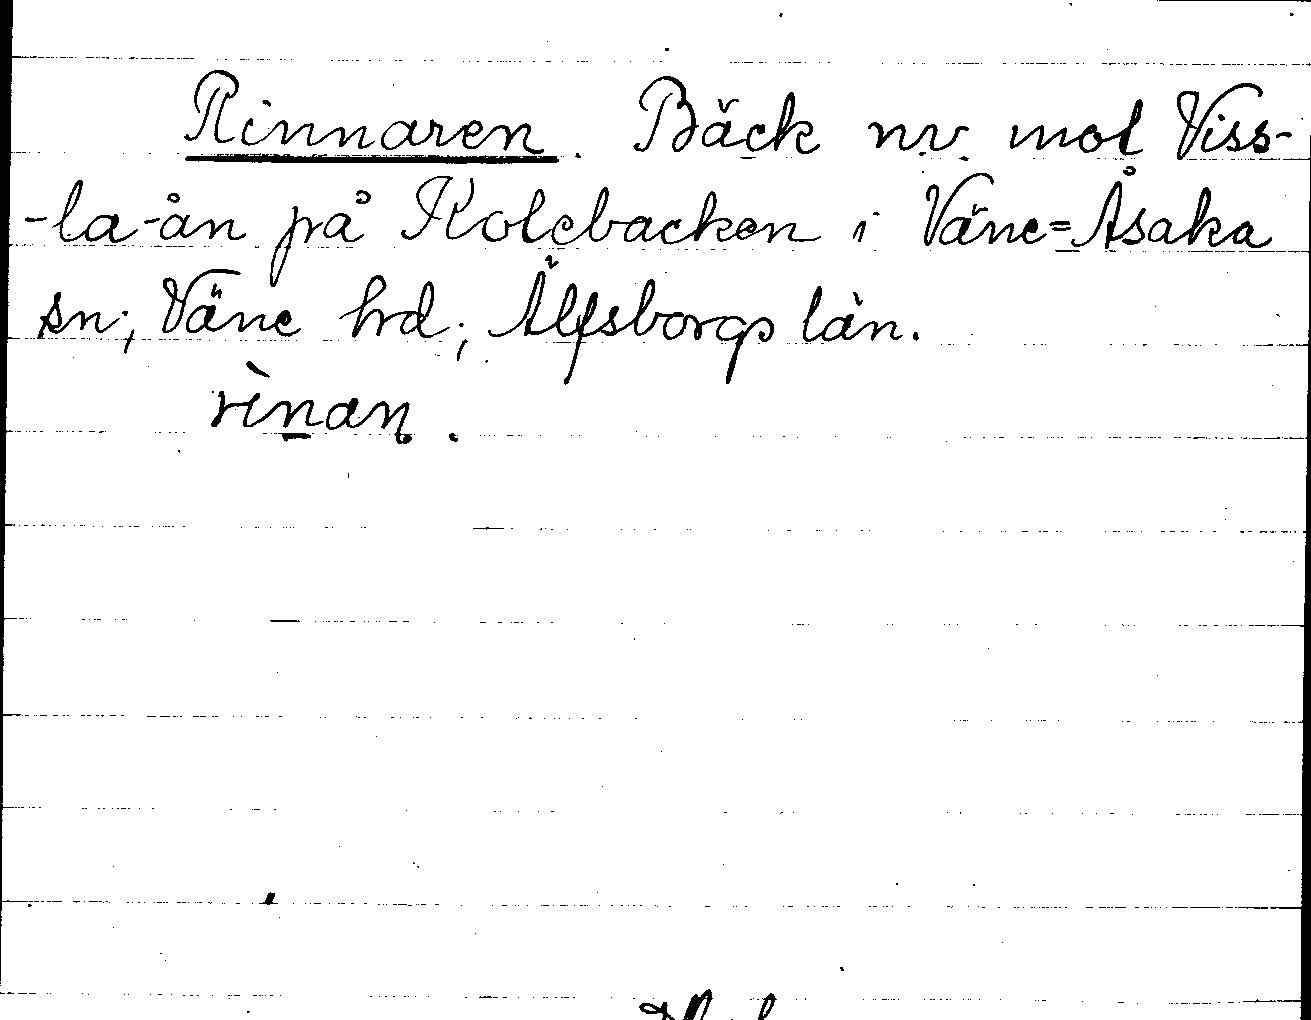 Rinnaren. Bäck nv. mot Viss-
-la-ån på Kolebacken i Väne=Åsaka
sn; Väne hrd; Älfsborgs län.
rìnan.